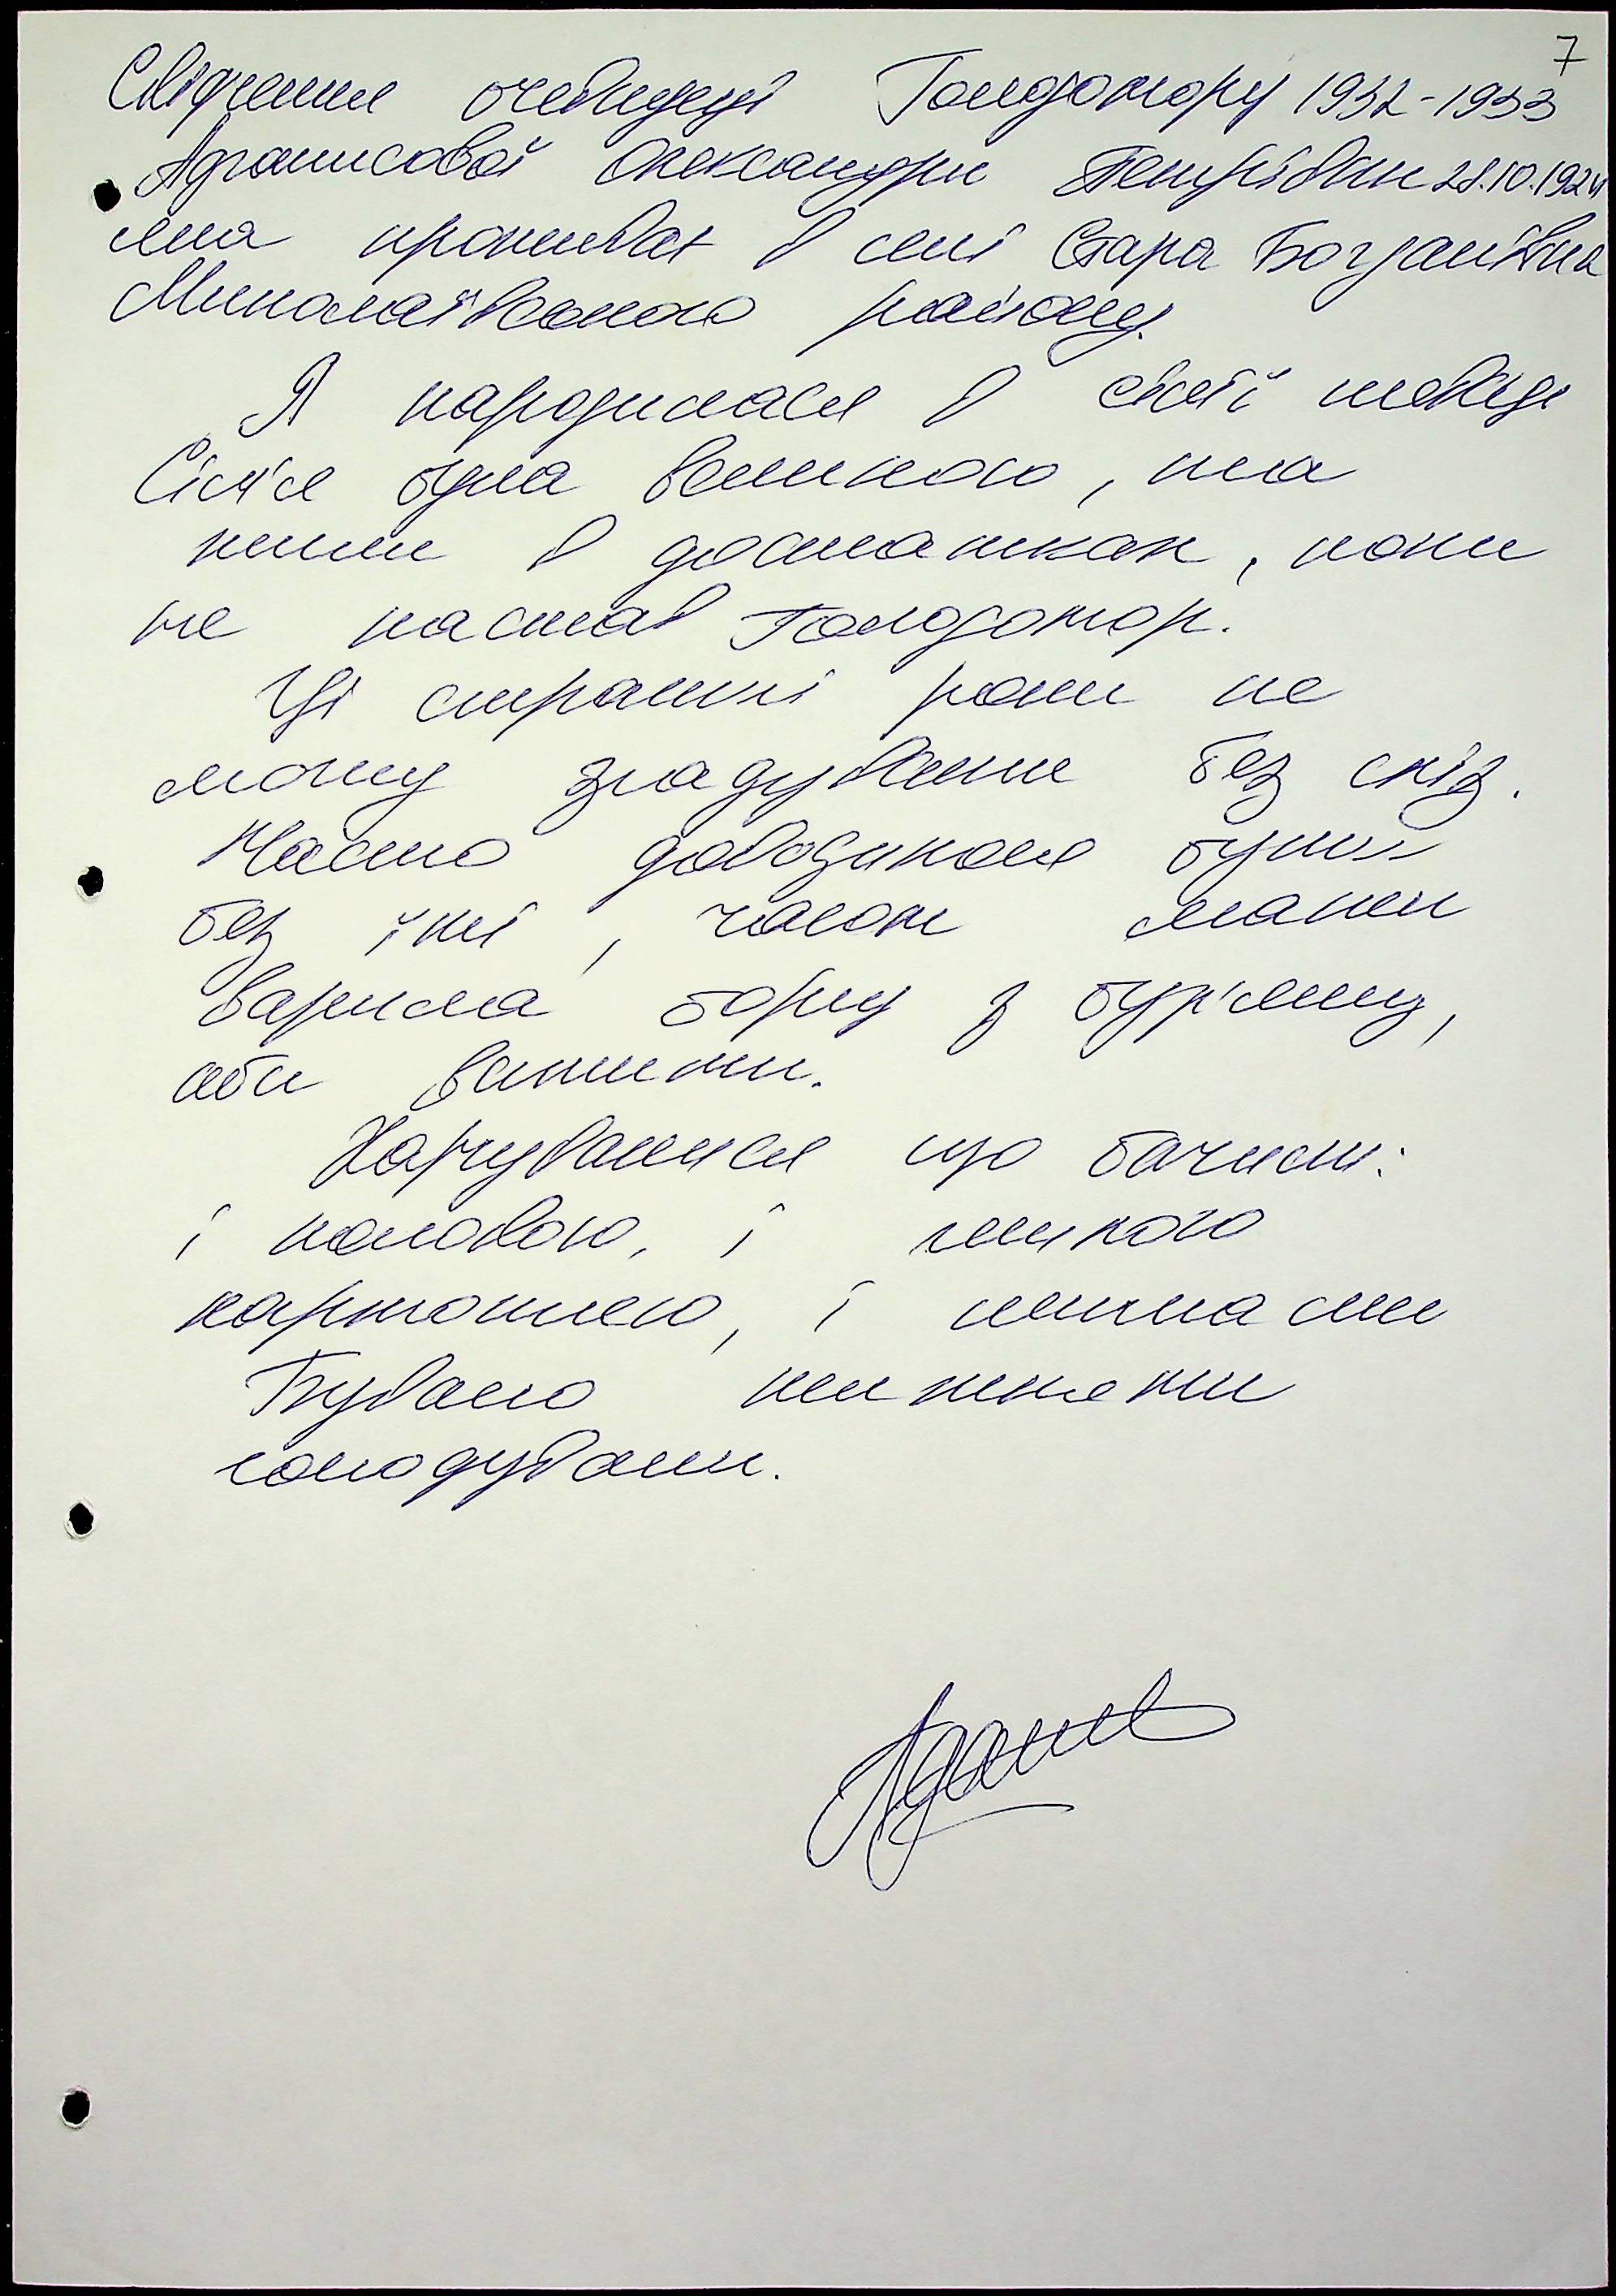 7
Свідчення очевидеці Голодомору 1932-1933
Олександри Петрівни 28.10.1924
яка проживає в селі Стара Богданівка
Миколаївського району.
Я народилася в своїй
Сім'я була великою,
жили в достатках, поки
не настав Голодомор.
Ці страшні роки не
можу згадувати без сліз.
Часто доводилося бути
без їжі, часом мати
варила борщ з бур'яну,
аби вижити.
Харчувалися що бачили:
і половою, і гнилою
картоплею, і
Бувало тижнями
голодували.